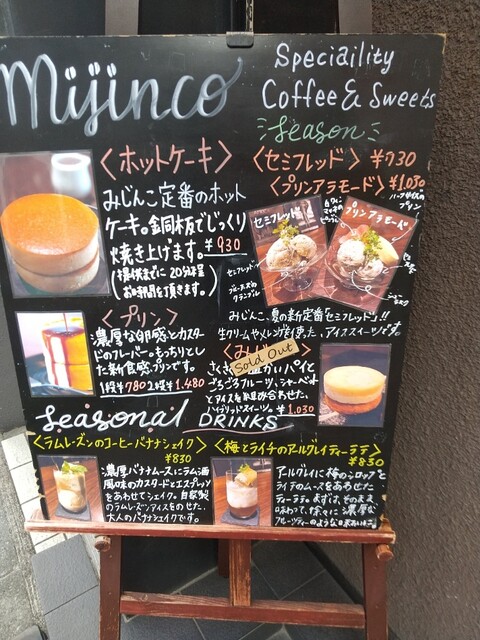 Mijinco
Speciality
Coffee & Sweets
Season
<ホットケーキ>
みじんこ定番のホット
ケーキ。銅板でじっくり
焼き上げます。¥930
(提供までに20分程
お時間を頂きます。)
<セミフレッド> ¥730
<プリンアラモード> ¥1.030
セミフレッド
プリンアラモード
みじんこ、夏の新定番セミフレッド!!
生クリームやメレンゲを使った、アイススイーツです。
<プリン>
濃厚な卵感とカスター
ドのフレーバー。もっちりとし
た新食感プリンです。
1段¥780 2段¥1.480
Sold Out
ごろごろフルーツ、シャーベット
とアイスを組み合わせた、
ハイブリッドスイーツ。¥1.030
Seasonal DRINKS
<ラムレーズンのコーヒーバナナシェイク>
¥830
濃厚バナナムースにラム酒
風味のカスタードとエスプレッソ
をあわせてシェイク。自家製
のラムレーズンアイスをのせた、
大人のバナナシェイクです。
<梅とライチのアールグレイティーラテ>
¥830
アールグレイに梅のシロップと
ライチのムースをあわせた
ティーラテ。まずは、そのまま
味わって、徐々に濃厚な